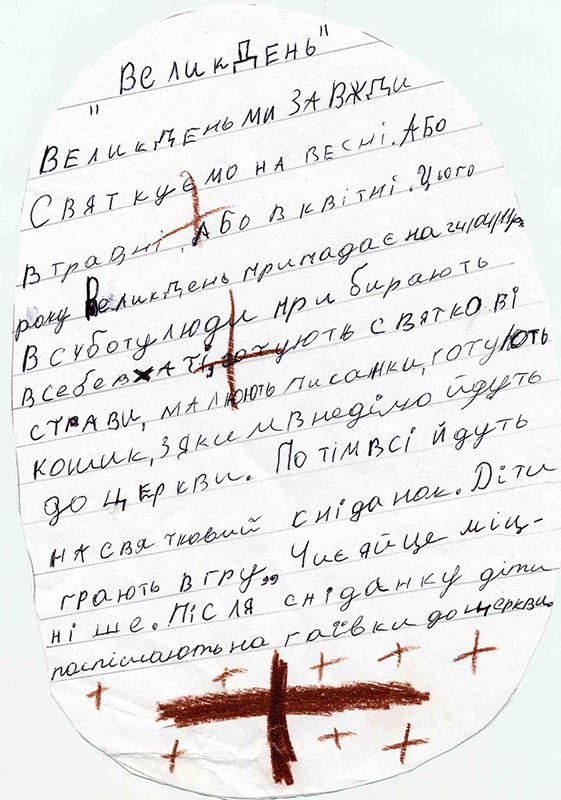 "ВеликДень"
ВеликДень ми завжди
Святкуємо на весні. Або
в травні, Або в квітні. Цього
року Великдень припадає на 24/04/11р
В суботу люди при бирають
в себе в хаті, готують святкові
страви, малюють писанки, готують
кошик, з яким в неділю йдуть
до церкви. Потім всі йдуть
на святковий сніданок. Діти
грають в гру „Чиє яйце міц-
ні ше. Після сніданку діти
поспішають на гаївки до церкви.